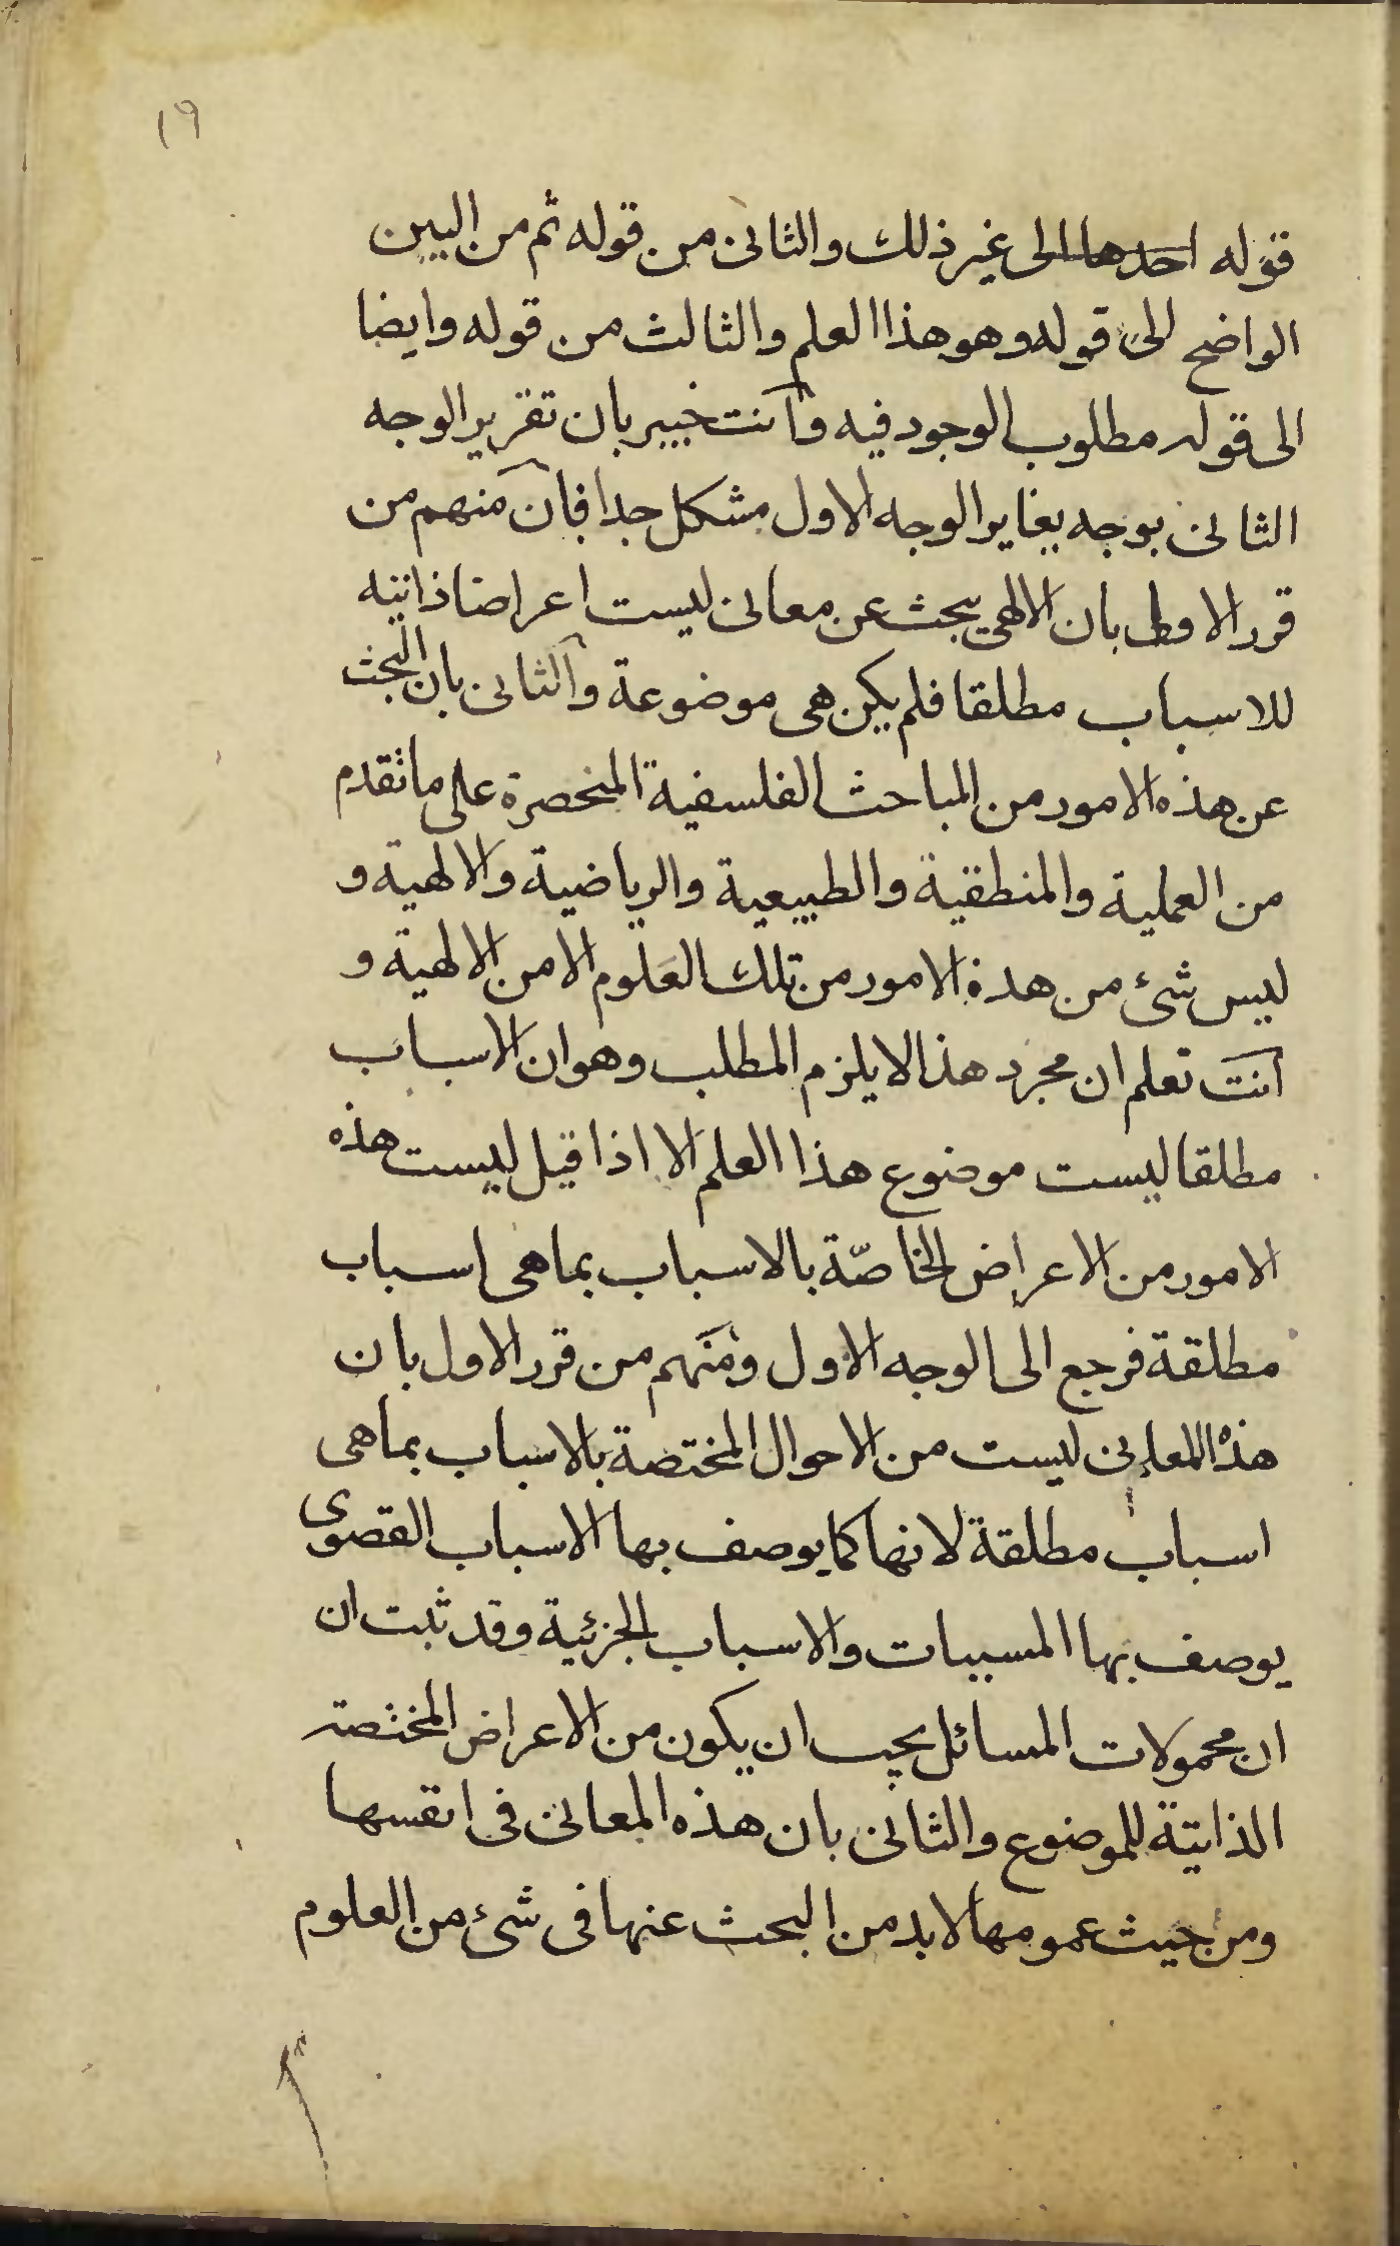 ١٩
قوله احدها الى غير ذلك والثانى من قوله ثم من البين
الواضح الى قوله وهو هذا العلم والثالث من قوله وايضا
الى قوله مطلوب الوجود فيه وانت خبير بان تقرير الوجه
الثانى بوجه يغاير الوجه الاول مشكل جدا فان منهم من
قرر الاول بان الالهى يبحث عن معانى ليست اعراضا ذاتيه
للاسباب مطلقا فلم يكن هى موضوعة والثانى بان البحث
عن هذه الامور من المباحث الفلسفية المنحصرة على ما تقدم
من العملية والمنطقية والطبيعية والرياضية والالهية و
ليس شئ من هذة الامور من تلك العلوم الا من الالهية و
انت تعلم ان مجرد هذا لا يلزم المطلب وهو ان الاسباب
مطلقا ليست موضوع هذا العلم الا اذا قيل ليست هذه
الامور من الاعراض الخاصّة بالاسباب بما هى اسباب
مطلقة فرجع الى الوجه الاول ومنهم من قرر الاول بان
هذه المعانى ليست من الاحوال المختصة بالاسباب بما هى
اسباب مطلقة لانها كما يوصف بها الاسباب القصوى
يوصف بها المسببات والاسباب الجزئية وقد ثبت ان
ان محمولات المسائل يجب ان يكون من الاعراض المختصة
الذاتية للموضوع والثانى بان هذه المعانى فى انفسها
ومن حيث عمومها لا بد من البحث عنها فى شئ من العلوم